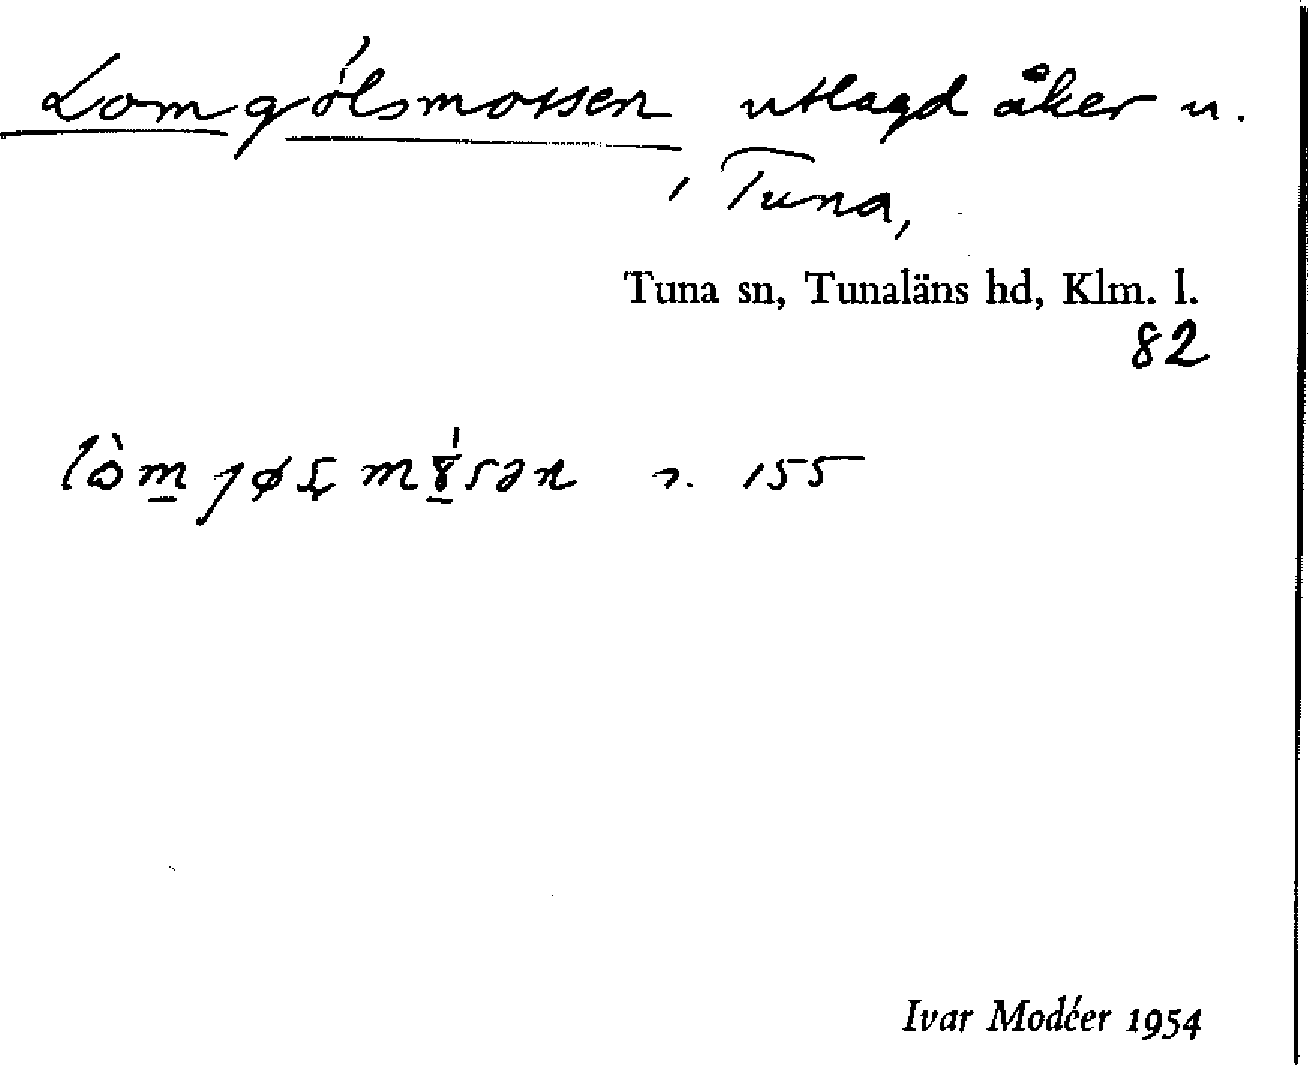 Lomgölsmossen utlagd åker n.
i Tuna,
Tuna sn, Tunaläns hd, Klm. l.
82
155
Ivar Modéer 1954